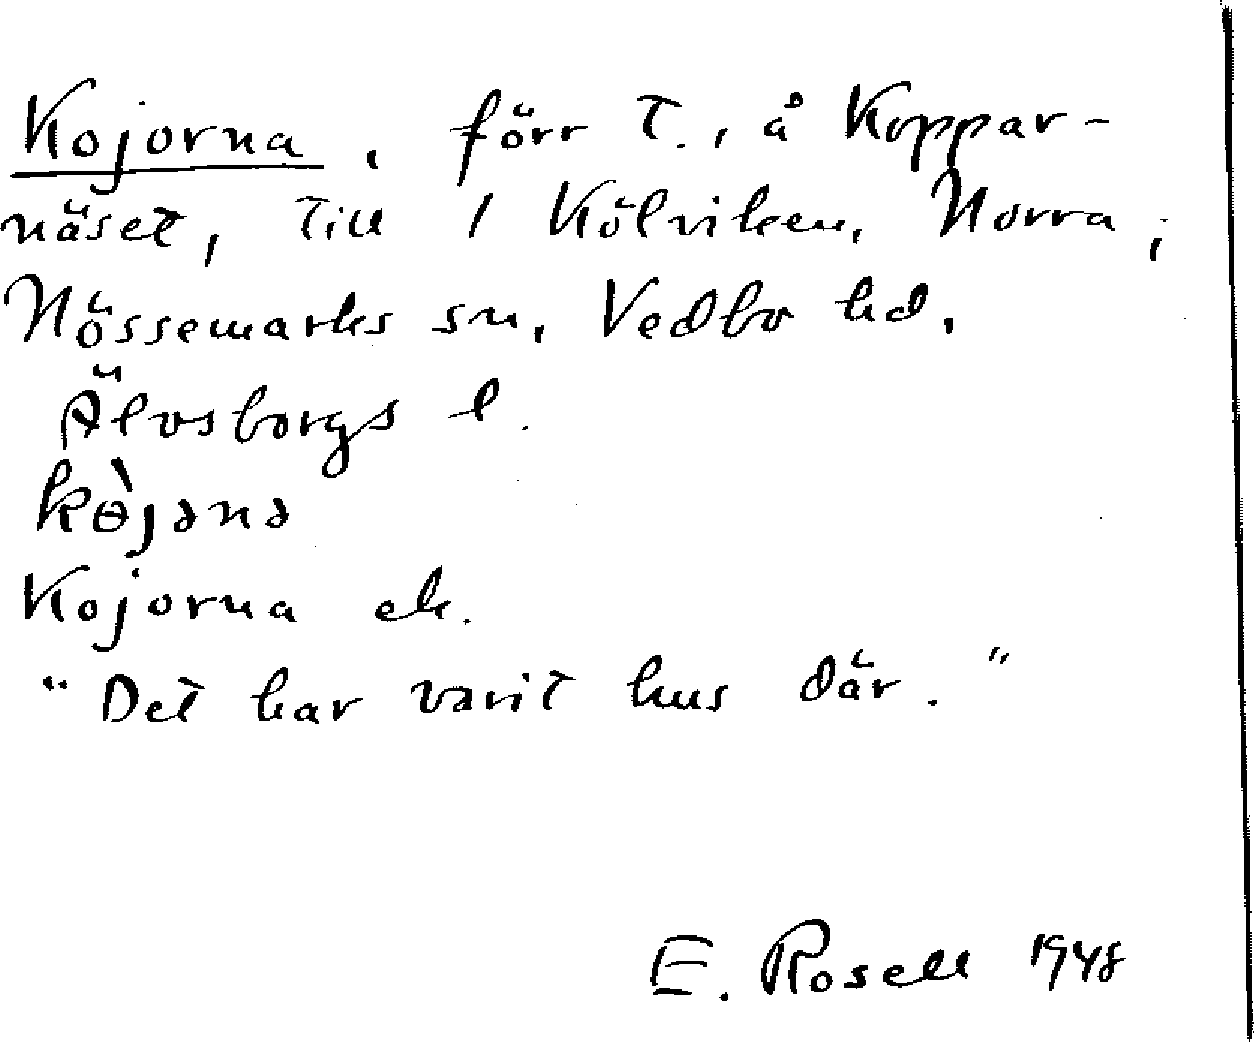 Kojorna, förr T., å Koppar-
näset, till 1 Kölviken, Norra,
Nössemarks sn, Vedbo hd,
Älvsborgs l.
kɵ̀jənə
Kojorna ek.
"Det har varit hus där."
E. Rosell 1948